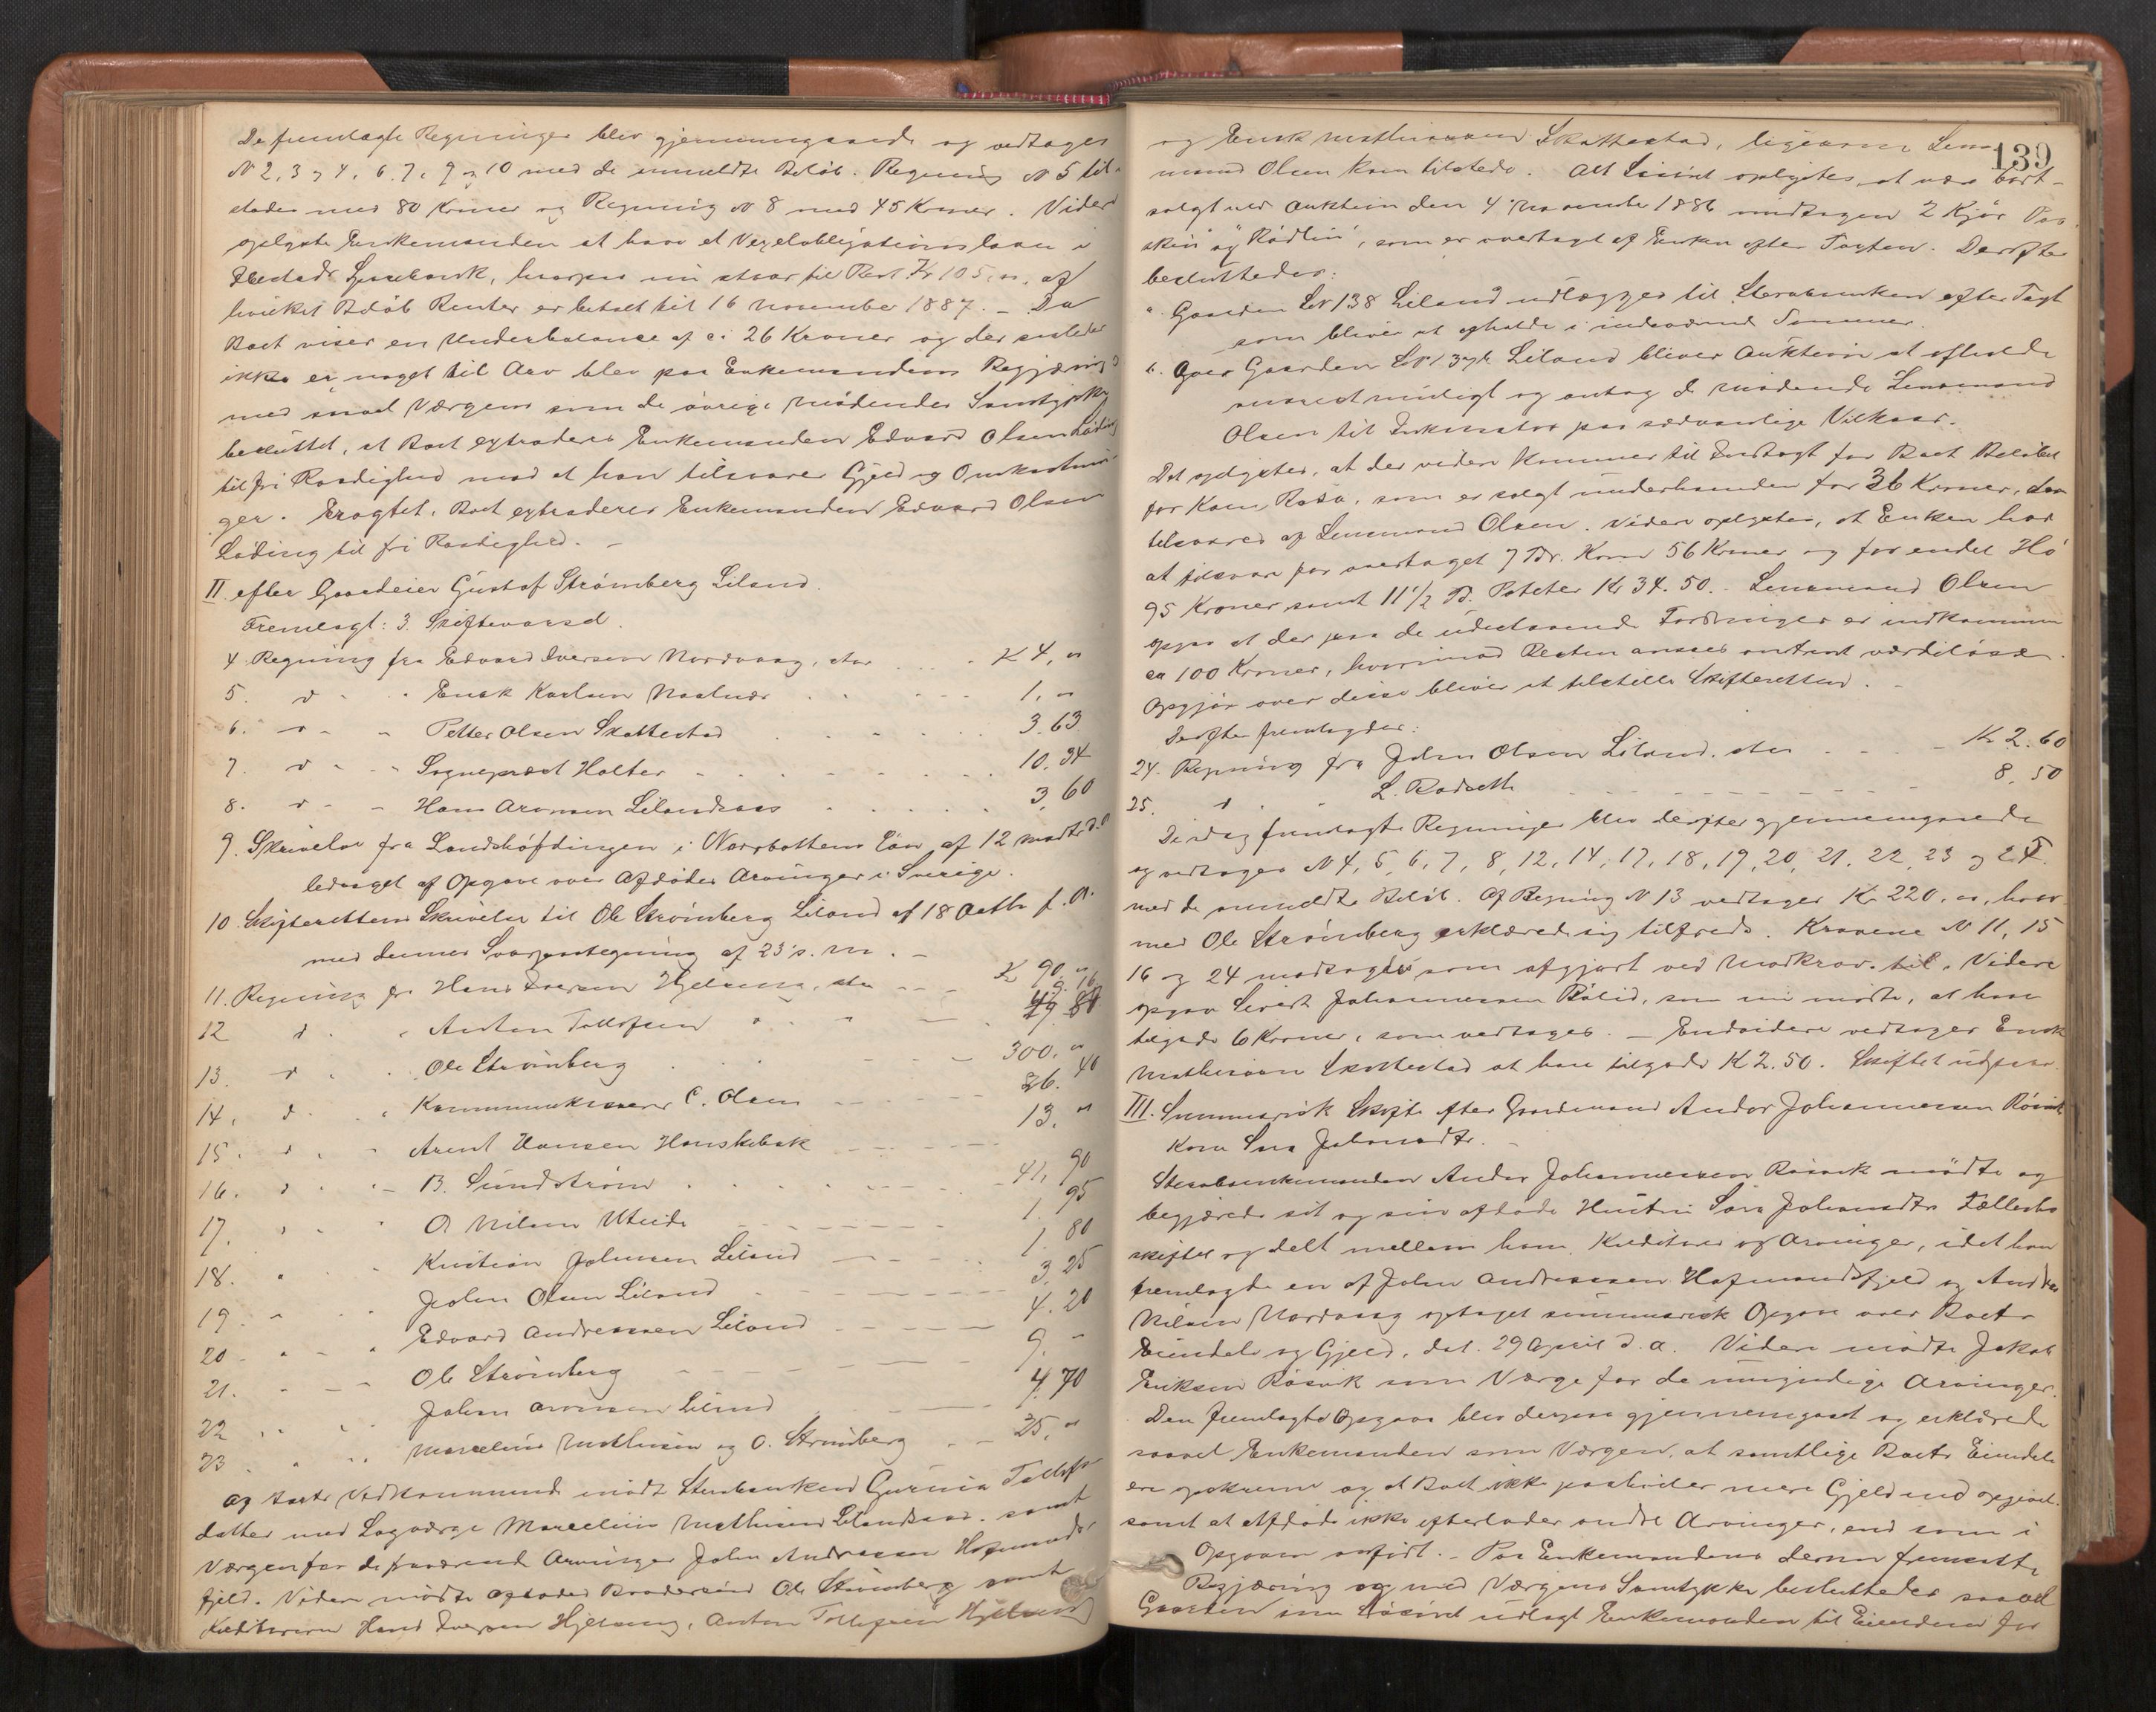 De fremlagte Regninger blev gjennemgaaede og vedtages
N 2, 3 og 4, 6, 7, 9 og 10 med de anmeldte Beløb. Regning N 5 til-
stodes med 80 Kroner og Regning N 8 med 45 Kroner. Videre
oplyste Enkemanden at have et Vexelobligationslaan i
Ibestads Sparebank, hvorpaa nu staar til Rest Kr 105,", af
hvilket Beløb Renter er betalt til 16 November 1887. – Da
Boet viser en Underbalance af c: 26 Kroner og der saaledes
ikke er noget til Arv blev paa Enkemandens Begjæring
med saavel Værgens som de øvrige Mødendes Samtykke
besluttet, at Boet extraderes Enkemanden Edvard Olsen Løding
til fri Raadighed mod at han tilsvarer Gjeld og Omkostnin-
ger. Eragtet, Boet extraderes Enkemanden Edvard Olsen
Løding til fri Raadighed. –
II efter Gaardeier Gustaf Strømberg Liland.
Fremlagt: 3. Skiftevarsel.
4. Regning fra Edvard Iversen Nordvaag, stor . . . . K 4, "
5. d - - Enok Karlsen . . . 1, "
6. d - - Petter Olsen Skattestad . . . 3. 63
7. d - - Sogneprest Holter . . . 10. 34
8. d - - Hans Aronsen Lilandsaas . . . 3. 60
9. Skrivelse fra Landshöfdingen i Norrbottens Län af 12 Marts d. A.
ledsaget af Opgave over Afdødes Arvinger i Sverige.
10. Skifterettens Skrivelse til Ole Strømberg Liland af 18 Octbr f. A.
med dennes Svarpaategning af 23 s. M. –
11. Regning fra Hans Iversen Hjelvang, stor - - - K 90. "
12 d . . Anton Tollefsen . . - - 49. 16
13. d . . Ole Strømberg . . . - - 300. "
14. d . . Kommunekasserer C. Olsen - - - 26. 40
15. d . . Arent Hansen Hanskebak - - - 13. "
16. d . - B. Sundstrøm . . . - - 41, 90
17. " - O Nilsen - - - 1. 95
18. " - Kristian Johnsen Liland - - - 1. 80
19. " - John Olsen Liland - - - 3. 25
20 - " - Edvard Andreassen Liland - - - 4. 20
21. - - - Ole Strømberg - - - 9. "
22 . . " Johan Aronsen Liland - - 4. 70
23 . " .. Marcelius Mathisen og O. Strømberg - - 25, "
Af Boets Vedkommende mødte Sterbenken Gurina Tollefs-
datter med Lagværge Marcelius Mathisen Lilandsaas. samt
Værgen for de fraværende Arvinger John Andreassen Hofmands-
fjeld. Videre mødte afdødes Brodersøn Ole Strømberg samt
Kreditorerne Hans Iversen Hjelvang, Anton Tollefsen Hjelvang
139
og Enok Mathisasen Skattestad, ligesom Lens-
mand Olsen kom tilstede. Alt Løsøret oplystes, at være bort-
solgt ved Auktion den 4 November 1886 undtagen 2 Kjør
og "Rødlin", som er overtaget af Enken efter Taxten. Derefter
besluttedes:
a. Gaarden Lbr 138 Liland udlægges til Sterbenken efter Taxt
som bliver at afholde i indeværende Sommer.
b. Over Gaarden Lbr 137b Liland bliver Auktion at afholde
snarest muligt og antog de Mødende Lensmand
Olsen til Inkassator paa sædvanlige Vilkaar.
Det oplystes, at der videre kommer til Indtægt for Boet Beløbet
for Koen Rosa, som er solgt underhaanden for 36 Kroner, der
tilsvares af Lensmand Olsen. Videre oplystes, at Enken har
at tilsvare for overtaget 7 Tdr. Korn 56 Kroner og for endel Hø
95 Kroner samt 11 1/2 Td. Poteter Kr 34. 50. - Lensmand Olsen
opgav at der paa de udestaaende Fordringer er indkommen
ca 100 Kroner, hvorimod Resten ansees omtrent værdiløse.
Opgjør over disse bliver at tilstille Skifteretten. -
Derefter fremlagdes:
24. Regning fra John Olsen Liland, stor - - - K 2. 60
25. d . . L. Rodseth - - - 8. 50
De idag fremlagte Regninger blev derefter gjennemgaaede
og vedtages N 4, 5, 6, 7, 8, 12, 14, 17, 18, 19, 20, 21, 22, 23 og 25.
med de anmeldte Beløb. Af Regning N 13 vedtages Kr 220, ", hvor-
med Ole Strømberg erklærede sig tilfreds. Kravene N 11, 15
16 og 24 modtages som afgjort ved Modkrav. Videre
opgav Sivert Johannessen Bølid, som nu mødte, at have
tilgode 6 Kroner, som vedtages. – Endvidere vedtages Enok
Mathisasen Skattestad at have tilgode K 2.50. Skiftet udsat.
III. Summarisk Skifte efter Gaardmand Andor Johannessen Røsvik
Kone Sara Johansdtr. –
Sterbenkemanden Andor Johannessen Røsvik mødte og
begjærede sit og sin afdøde Hustru Sara Johansdtrs Fællesbo
skiftet og delt mellem ham, Kreditorer og Arvinger, idet han
fremlagde en af John Andreassen Hofmandsfjeld og Andreas
Nilsen Nordvaag optaget summarisk Opgave over Boets
Eiendele og Gjeld, dat. 29 April d. A. Videre mødte Jakob
Eriksen Røsvik som Værge for de umyndige Arvinger.
Den fremlagte Opgave blev derpaa gjennemgaat og erklærede
saavel Enkemanden som Værgen, at samtlige Boets Eiendele
ere opskrevne og at Boet ikke paahviler mere Gjeld end opgivet.
samt at Afdøde ikke efterlader andre Arvinger, end som i
Opgaven anført. – Paa Enkemandens derom fremsatte
Begjæring og med Værgens Samtykke besluttedes saavel
Gaarden som Løsøret udlagt Enkemanden til Eiendom for